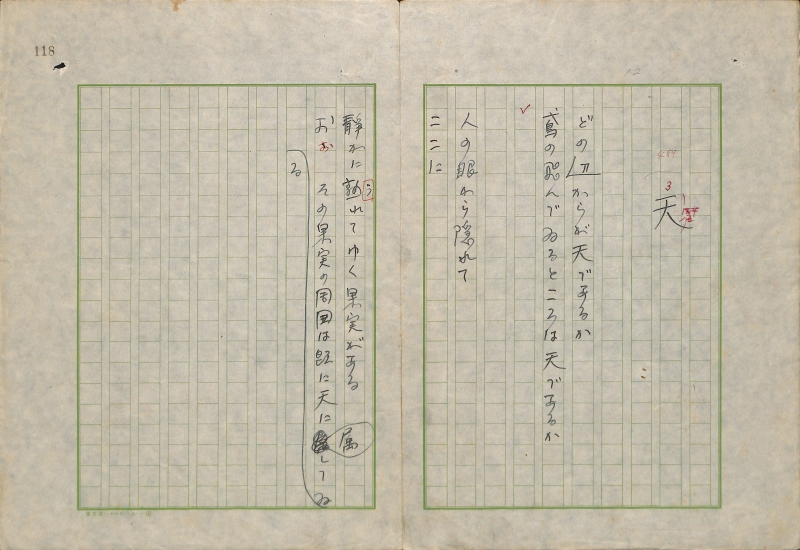 天
どの辺からが天であるか
鳶の飛んでゐるところは天であるか
人の眼から隠れて
ここに
静かに熟れてゆく果実がある
おお その果実の周囲は既に天に属してゐ
る
118
3
う